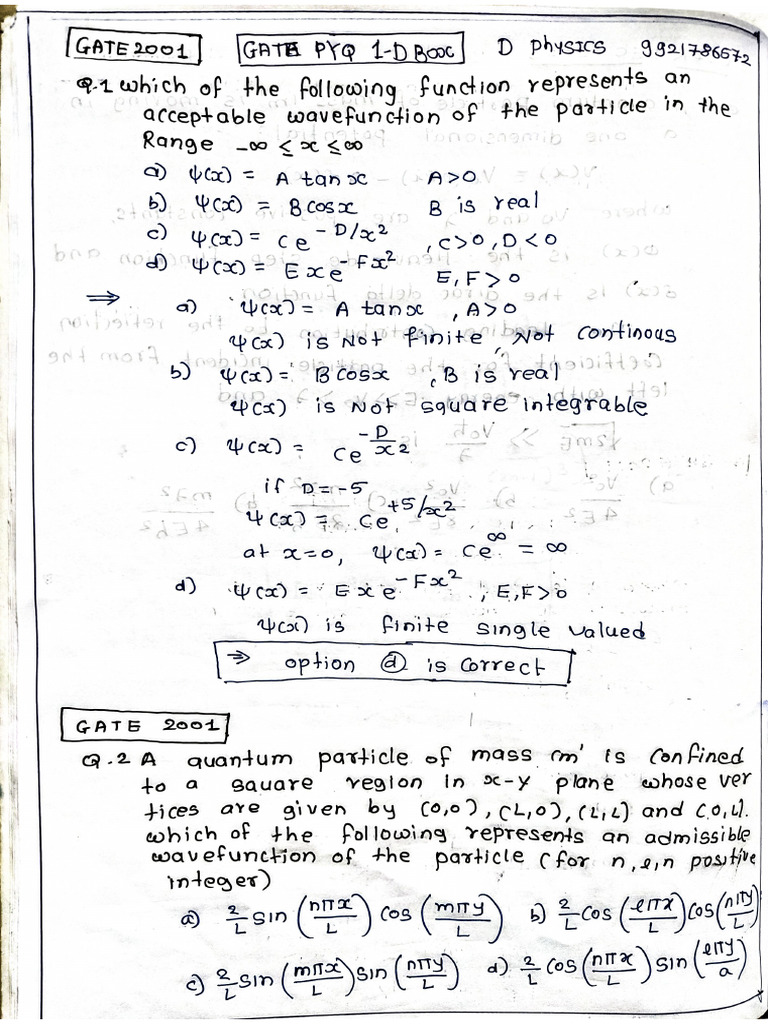 GATE 2001 GATE PYQ 1-D Box D Physics 9921786572
Q.1 which of the following function represents an
acceptable wavefunction of the particle in the
Range -∞ ≤ x ≤ ∞
a) ψ(x) = A tanx A>0
b) ψ(x) = B cosx B is real
c) ψ(x) = Ce^{-D/x²} , C>0, D<0
d) ψ(x) = E x e^{-Fx²} E, F>0
⇒ a) ψ(x) = A tanx , A>0
ψ(x) is Not finite, Not continous
b) ψ(x) = B cosx , B is real
ψ(x) is Not square integrable
c) ψ(x) = Ce^{-D/x²}
if D = -5
ψ(x) = Ce^{+5/x²}
at x=0, ψ(x) = Ce^{∞} = ∞
d) ψ(x) = E x e^{-Fx²} , E,F>0
ψ(x) is finite single valued
⇒ option ⓓ is correct
GATE 2001
Q.2 A quantum particle of mass 'm' is confined
to a sauare region in x-y plane whose ver
tices are given by (0,0), (L,0), (L,L) and (0,L).
which of the following represents an admissible
wavefunction of the particle (for n,l,n positive
integer)
a) 2/L sin (nπx/L) cos (mπy/L) b) 2/L cos (lπx/L) cos (nπy/L)
c) 2/L sin (mπx/L) sin (nπy/L) d) 2/L cos (nπx/L) sin (lπy/a)